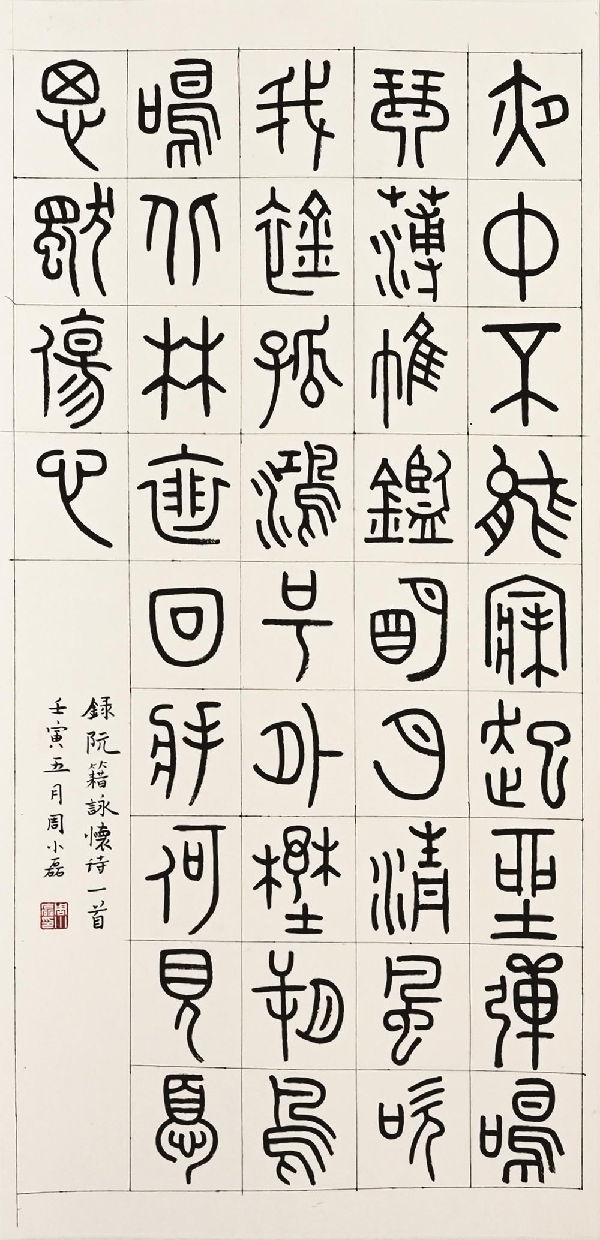 夜中不能寐起坐彈鳴
琴薄帷鑑明月清風吹
我襟孤鴻号外壄朔鳥
鳴北林徘回將何見憂
思獨傷心
錄阮籍詠懷詩一首
壬寅五月周小磊